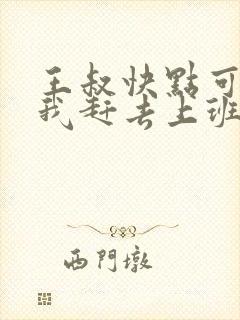 王叔快點可
我赶去上班
西門墩